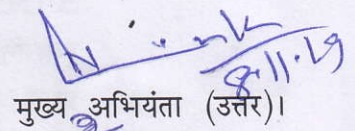 8.11.19
मुख्य अभियंता (उत्तर)।